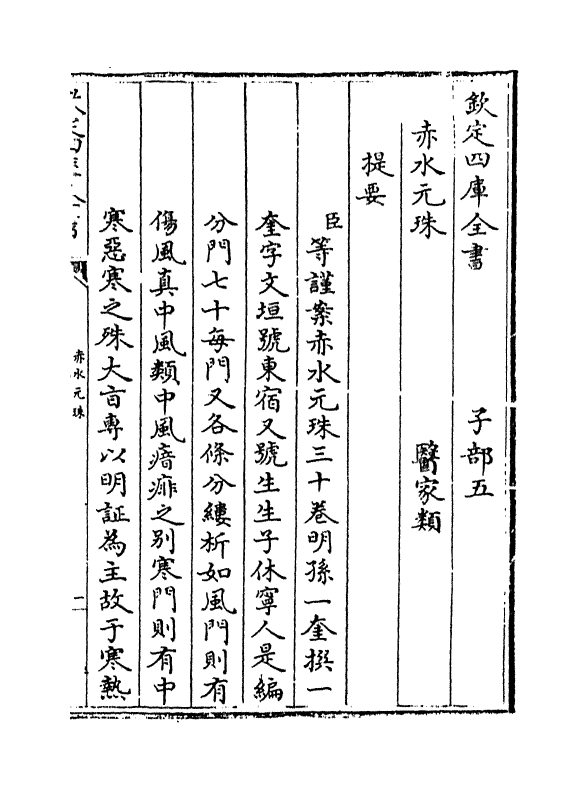 欽定四庫全書　子部五
赤水元珠　醫家類
提要
臣等謹案赤水元珠三十卷明孫一奎撰一
奎字文垣號東宿又號生生子休寧人是編
分門七十每門又各條分縷析如風門則有
傷風真中風類中風瘖痱之别寒門則有中
寒惡寒之殊大㫖專以明証為主故于寒熱
赤水元珠